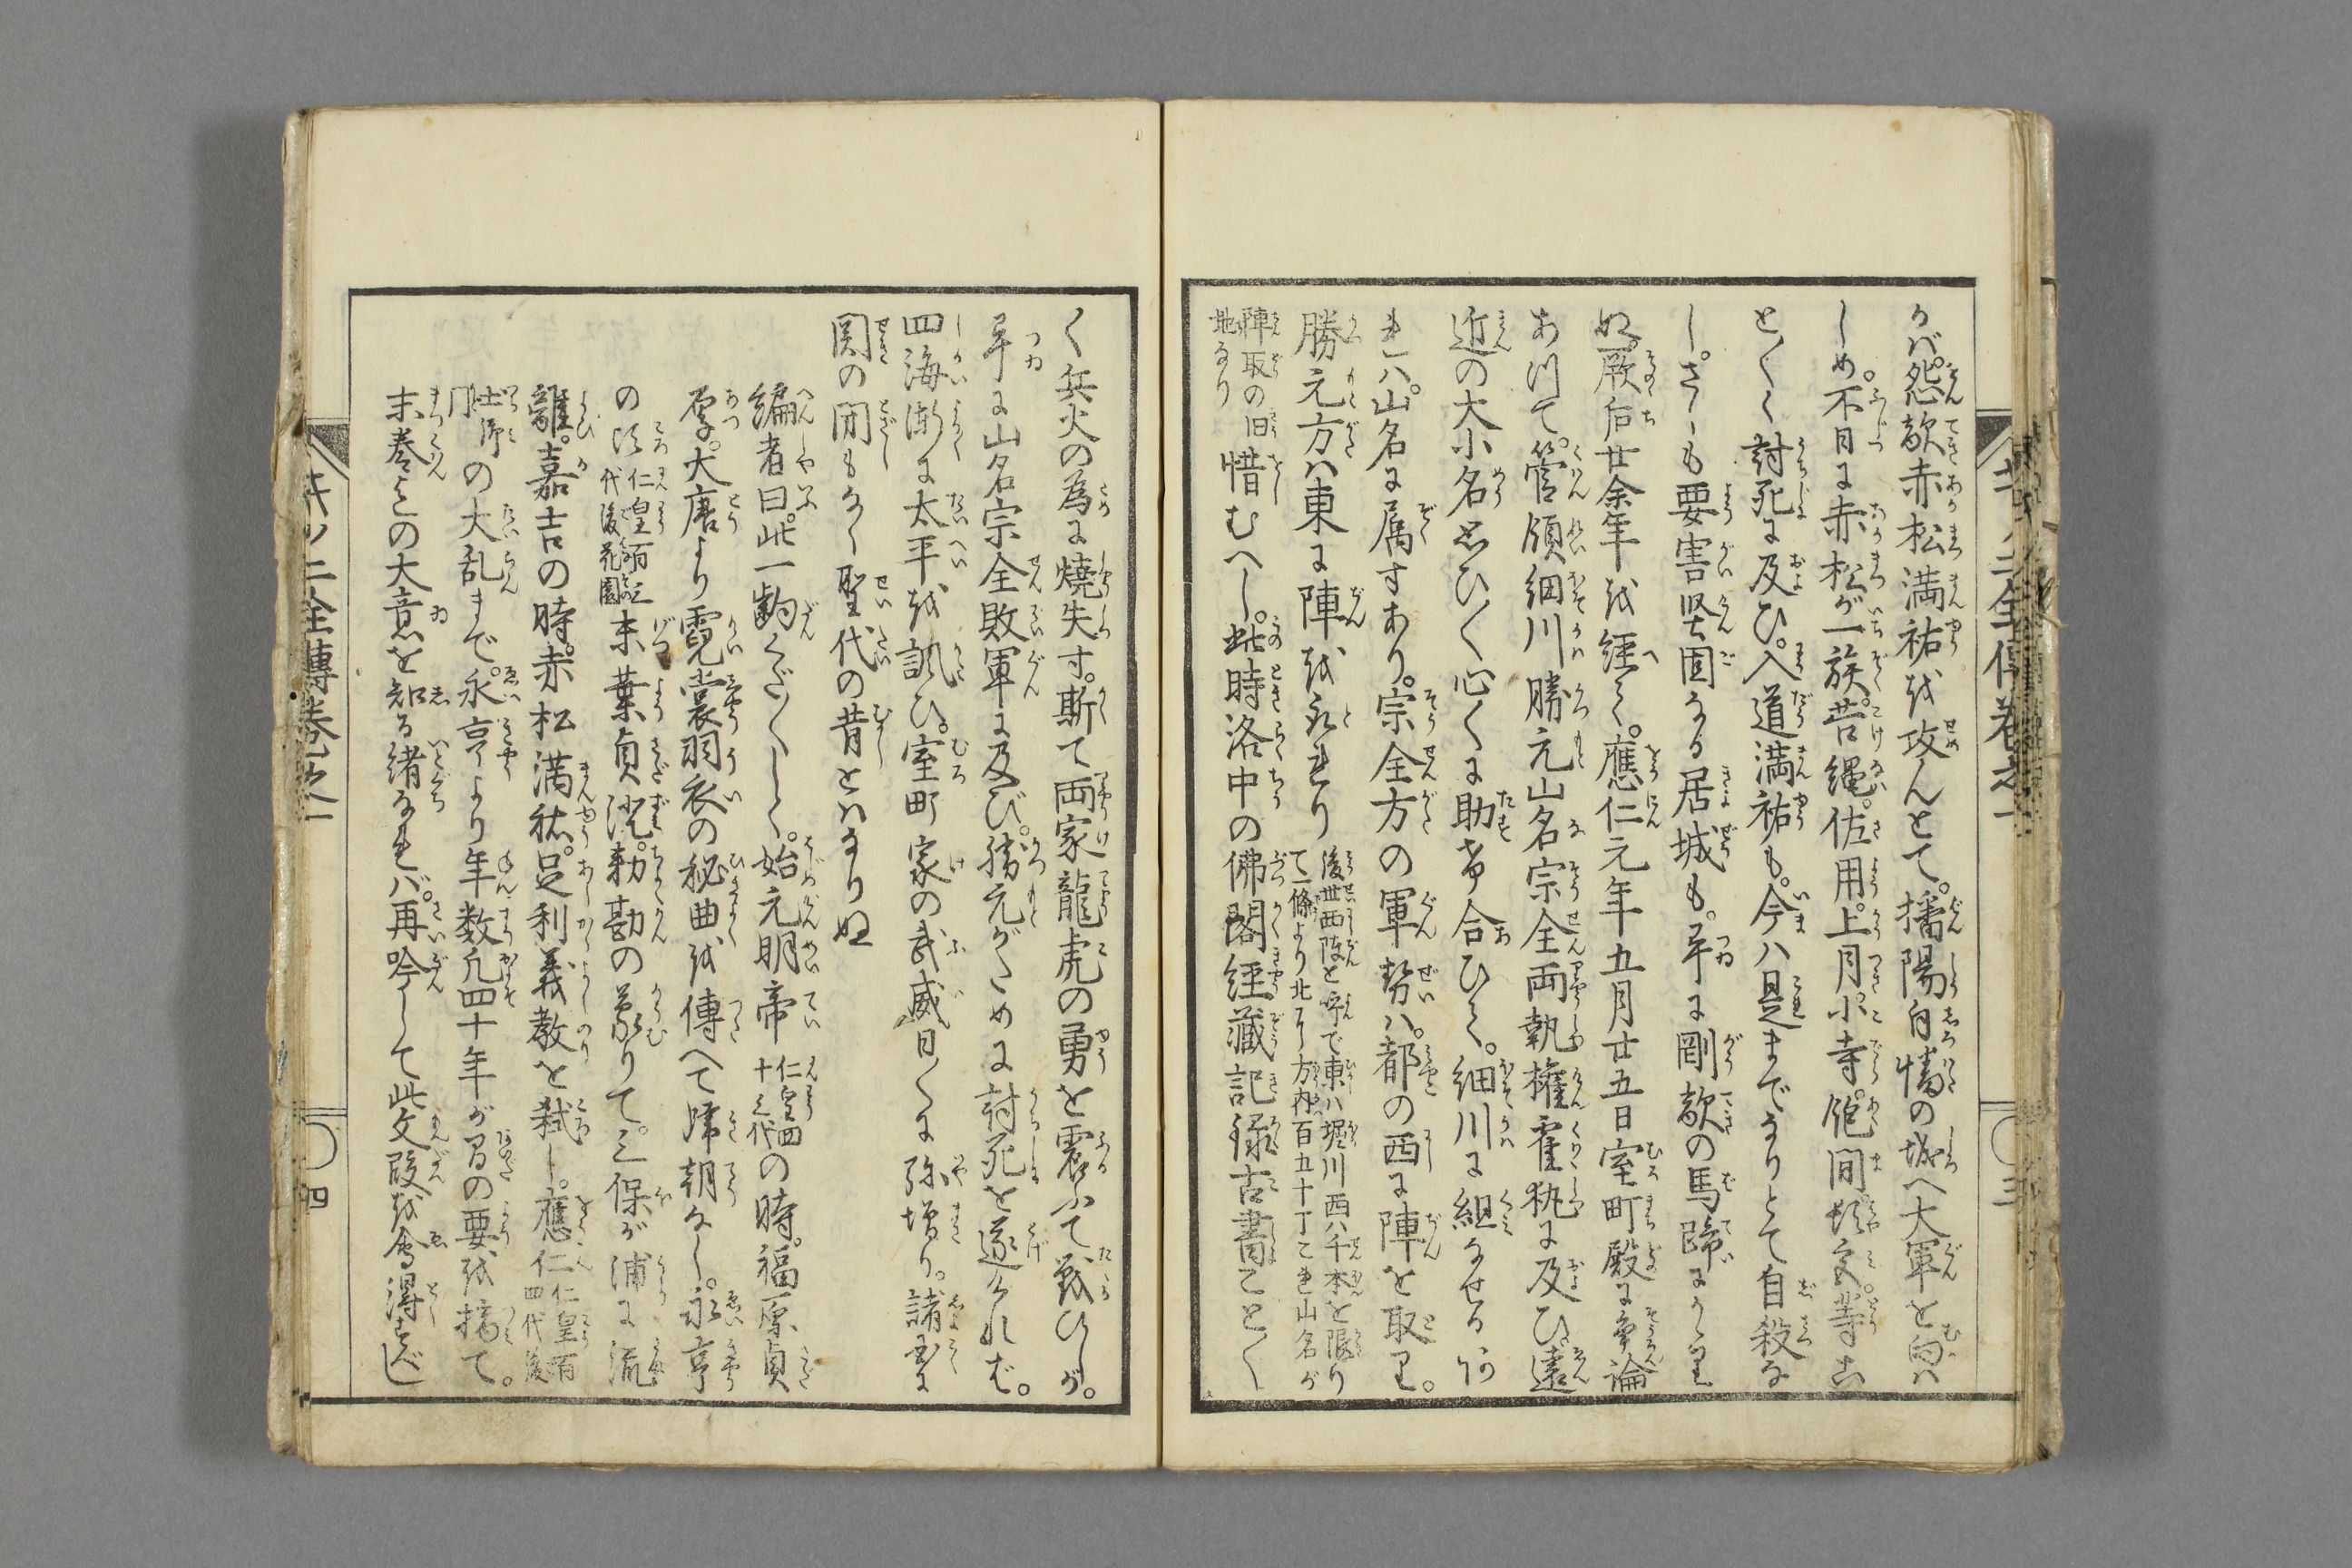 くバ。怨敵赤松満祐を攻んとて。播陽白幡の城へ大軍を向ハ
しめ。不日に赤松が一族。苔縄。佐用。上月。小寺。飽間。
とく〳〵討死に及ひ。入道満祐も。今ハ是までなりとて自殺な
し。さしも要害堅固なる居城も。卒に剛敵の馬蹄に
ぬ。厥后廿余年を經て。應仁元年五月廿五日室町殿に争論
あつて。管領細川勝元山名宗全両執權霍執に及ひ。遠
近の大小名思ひ〳〵心〳〵に助け合ひて。細川に組なせる
れハ。山名に属すあり。宗全方の軍勢ハ。都の西に陣を取り。
勝元方ハ東に陣を取れり 後世西陣と呼で東ハ堀川西ハ千本を限り
て一條より北の方方内百五十丁これ山名が
陣取の旧
地なり 惜むへし。此時洛中の佛閣經藏記録古書こと〴〵
く兵火の為に燒失す。斯て両家龍虎の勇を震ふて戦ひしが。
卒に山名宗全敗軍に及び。勝元がために討死を遂けれバ。
四海漸に太平を諷ひ。室町家の武威日〳〵に弥増り。諸
関の閉もなく聖代の昔とハなりぬ
編者曰。此一齣くだ〳〵しく。始元明帝 仁皇四
十三代 の時。福原貞
厚。大唐より霓裳羽衣の秘曲を傳へて帰朝なし。永亨
の頃 仁皇百三
代後花園 末葉貞滉。勅勘の蒙りて。三保が浦に流
離。嘉吉の時。赤松満祐。足利義教を弑し。應仁 仁皇百
四代後
土御
門 の大乱まで。永亨より年数凡四十年が間の要を摘て。
末巻との大意を知る緒なれバ。再吟して此文段を會得すべし
キノ二全傳巻之一
四
三